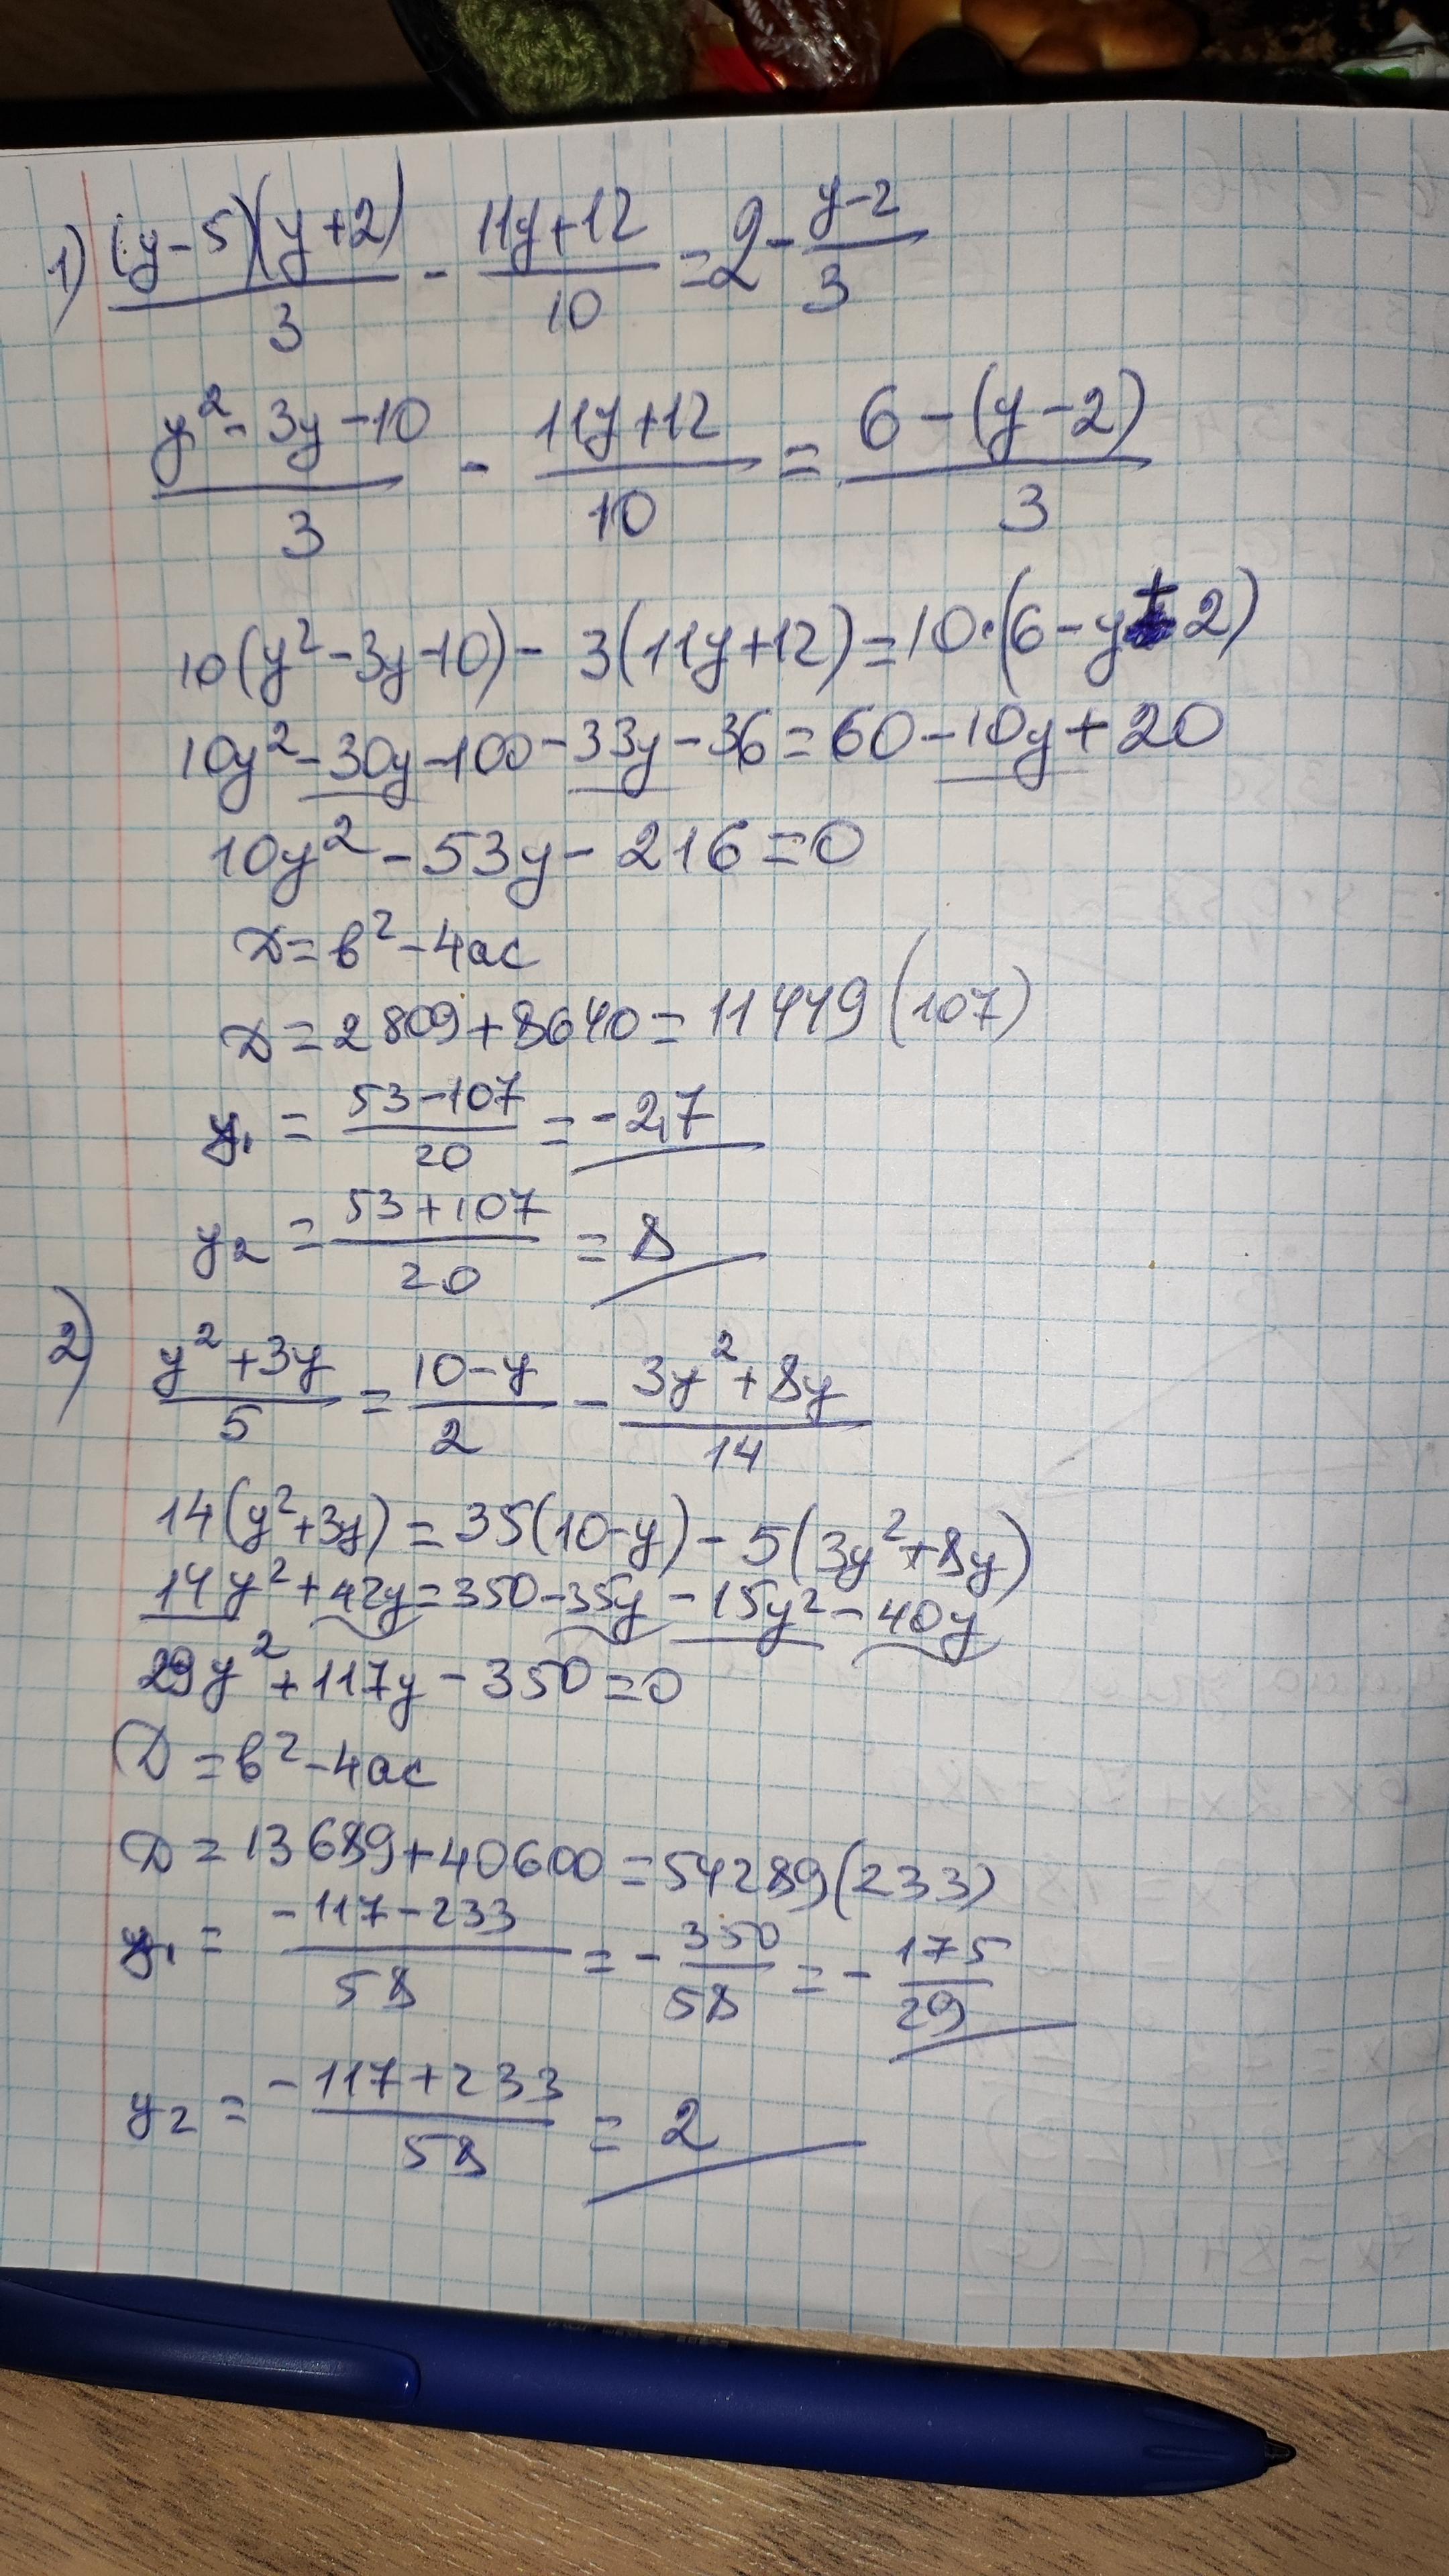 1) (y-5)(y+2)/3 - 11y+12/10 = 2 - y-2/3
y²-3y-10/3 - 11y+12/10 = 6-(y-2)/3
10(y²-3y-10)-3(11y+12)=10·(6-y+2)
10y²-30y-100-33y-36=60-10y+20
10y²-53y-216=0
D=b²-4ac
D=2809+8640=11449(107)
y₁ = 53-107/20 = -2,7
y₂ = 53+107/20 = 8
2) y²+3y/5 = 10-y/2 - 3y²+8y/14
14(y²+3y)=35(10-y)-5(3y²+8y)
14y²+42y=350-35y-15y²-40y
29y²+117y-350=0
D=b²-4ac
D=13689+40600=54289(233)
y₁ = -117-233/58 = -350/58 = -175/29
y₂ = -117+233/58 = 2